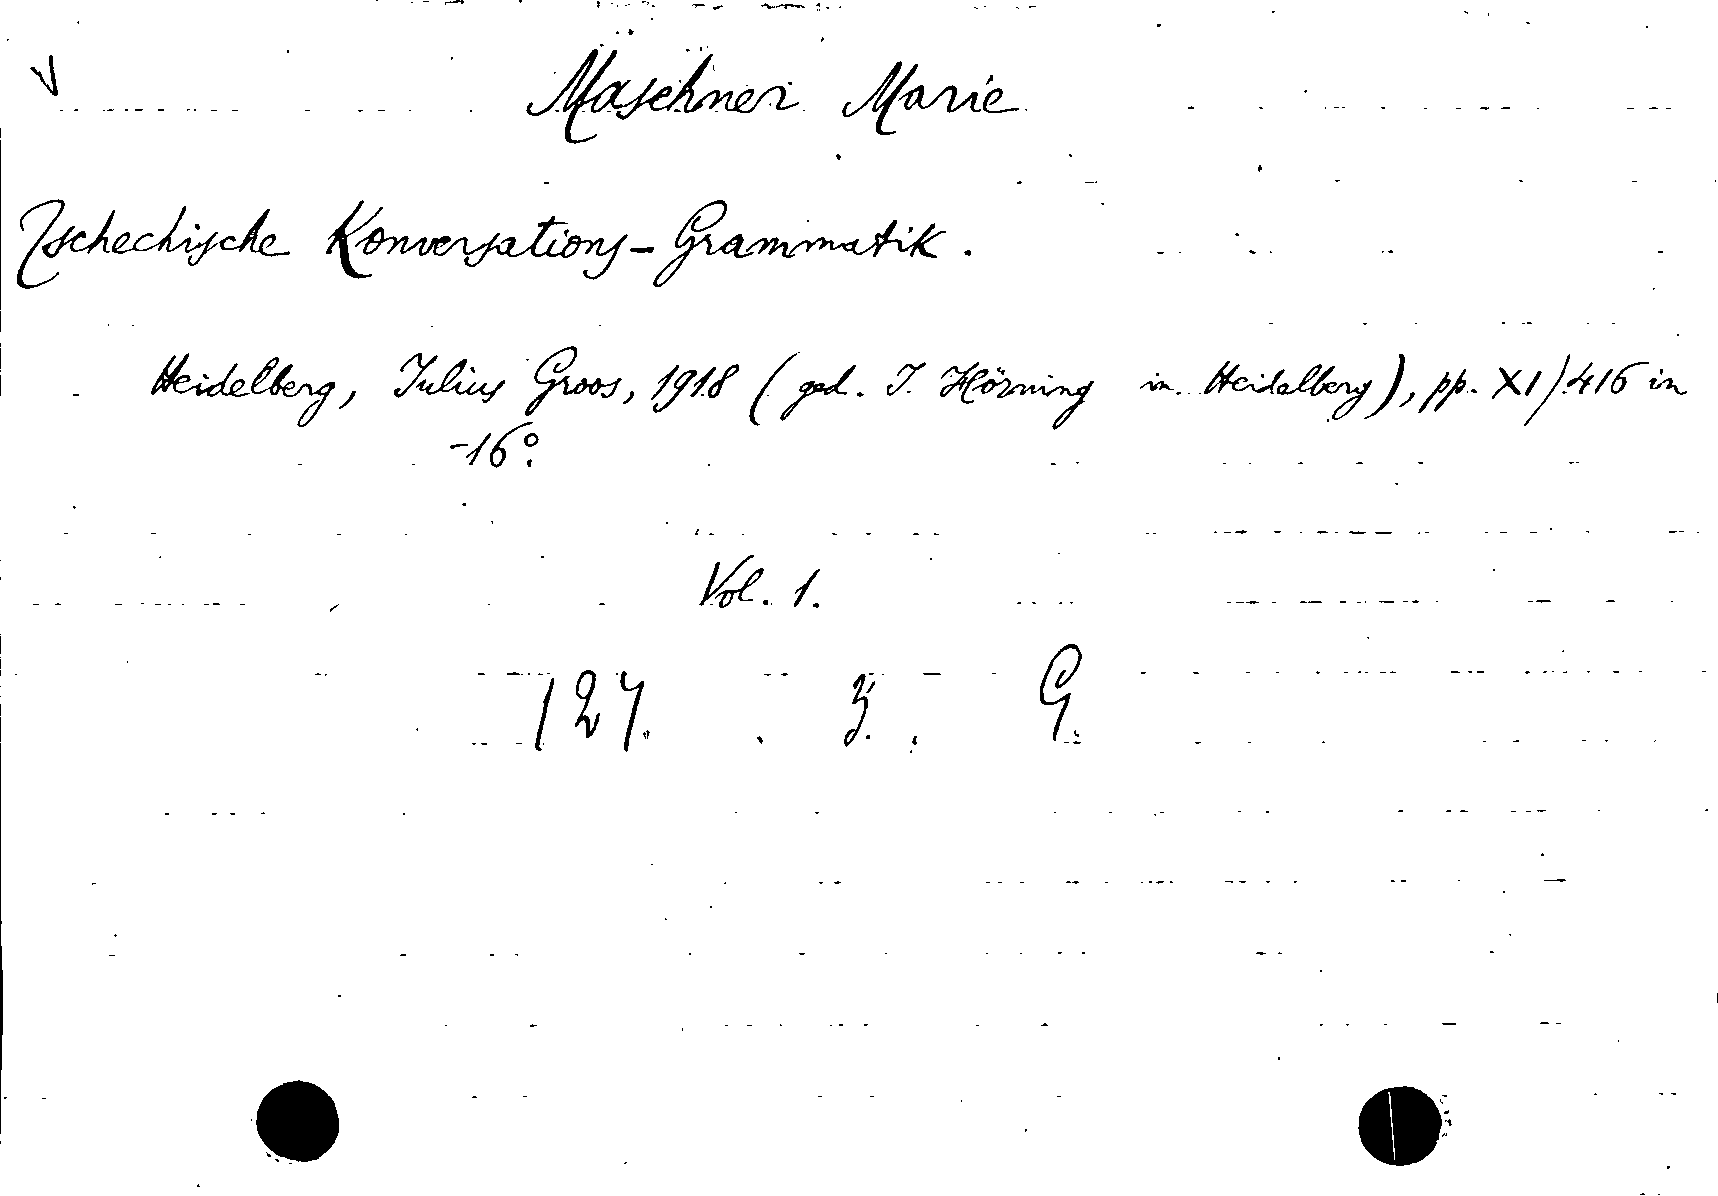 Maschner Marie
Tschechische Konversations-Grammatik.
Heidelberg, Julius Groos, 1918 (ged. J. Hörning in Heidelberg), pp. XI/416 in
-16°.
Vol. 1.
127. . 3. . G.